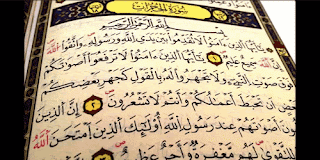 سُورَةُ الحُجُرَاتِ
بِسْمِ اللَّهِ الرَّحْمَٰنِ الرَّحِيمِ
يَٰٓأَيُّهَا الَّذِينَ ءَامَنُوا لَا تُقَدِّمُوا بَيْنَ يَدَيِ اللَّهِ وَرَسُولِهِۦ وَاتَّقُوا اللَّهَ
سَمِيعٌ عَلِيمٌ ١ يَٰٓأَيُّهَا الَّذِينَ ءَامَنُوا لَا تَرْفَعُوٓا أَصْوَٰتَكُمْ
صَوْتِ النَّبِيِّ وَلَا تَجْهَرُوا لَهُۥ بِالْقَوْلِ كَجَهْرِ بَعْضِكُمْ
أَن تَحْبَطَ أَعْمَٰلُكُمْ وَأَنتُمْ لَا تَشْعُرُونَ ٢ إِنَّ الَّذِينَ
أَصْوَٰتَهُمْ عِندَ رَسُولِ اللَّهِ أُولَٰٓئِكَ الَّذِينَ امْتَحَنَ اللَّهُ
لَهُم مَّغْفِرَةٌ وَأَجْرٌ عَظِيمٌ